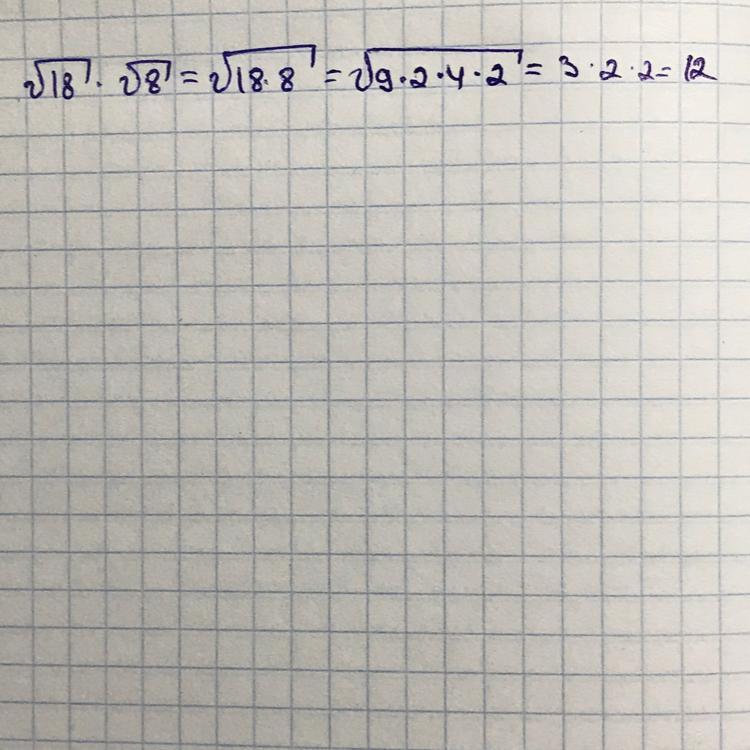 √18 · √8 = √18·8 = √9·2·4·2 = 3·2·2 = 12